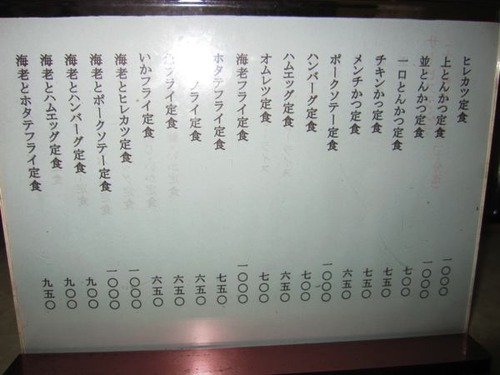 ヒレカツ定食 一〇〇〇
上とんかつ定食 一〇〇〇
並とんかつ定食 七〇〇
一口とんかつ定食 七五〇
チキンかつ定食 七五〇
メンチかつ定食 六五〇
ポークソテー定食 一〇〇〇
ハンバーグ定食 七〇〇
ハムエッグ定食 六五〇
オムレツ定食 七〇〇
海老フライ定食 一〇〇〇
ホタテフライ定食 七五〇
フライ定食 六五〇
フライ定食 六五〇
いかフライ定食 六五〇
海老とヒレカツ定食 一〇〇〇
海老とポークソテー定食 一〇〇〇
海老とハンバーグ定食 九〇〇
海老とハムエッグ定食 九〇〇
海老とホタテフライ定食 九五〇